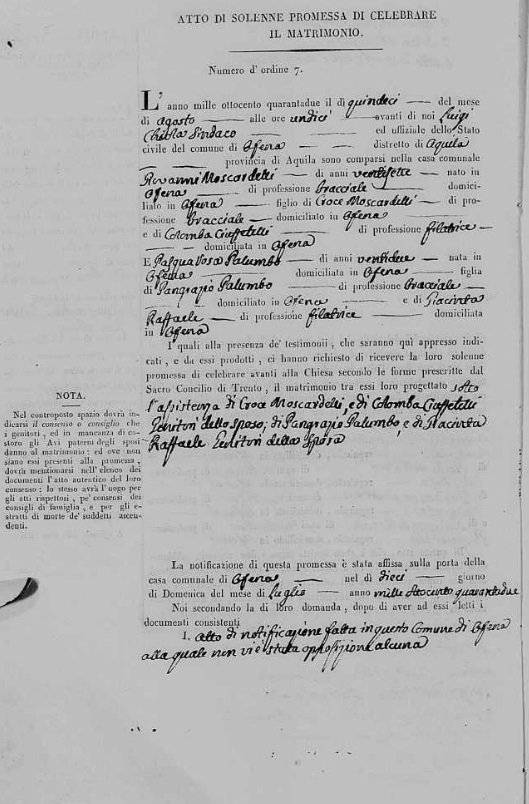 ATTO DI SOLENNE PROMESSA DI CELEBRARE
IL MATRIMONIO.
Numero d' ordine 7.
L' anno mille ottocento quarantadue il dì quindeci del mese
di agosto alle ore undici avanti di noi Luigi
Sindaco ed uffiziale dello Stato
civile del comune di Ofena distretto di Aquila
provincia di Aquila sono comparsi nella casa comunale
Giovanni Moscardelli di anni ventisette nato in
Ofena di professione bracciale domici-
liato in Ofena figlio di Croce Moscardelli di pro-
fessione bracciale domiciliato in Ofena
e di Colomba Ciaffetelli di professione filatrice
domiciliata in Ofena
E Pasqua Rosa Palumbo di anni ventidue nata in
Ofena domiciliata in Ofena figlia
di Pangrazio Palumbo di professione bracciale
domiciliato in Ofena e di Giacinta
Raffaele di professione filatrice domiciliata
in Ofena
I quali alla presenza de' testimonii, che saranno quì appresso indi-
cati, e da essi prodotti, ci hanno richiesto di ricevere la loro solenne
promessa di celebrare avanti alla Chiesa secondo le forme prescritte dal
Sacro Concilio di Trento, il matrimonio tra essi loro progettato sotto
l'assistenza di Croce Moscardelli, e di Colomba Ciaffetelli
Genitori dello sposo; di Pangrazio Palumbo, e di Giacinta
Raffaele Genitori della Sposa
NOTA.
Nel controposto spazio dovrà in-
dicarsi il consenso o consiglio che
i genitori, ed in mancanza di co-
storo gli Avi paterni degli sposi
danno al matrimonio; ed ove non
siano essi presenti alla promessa,
dovrà menzionarsi nell'elenco dei
documenti l'atto autentico del loro
consenso; lo stesso avrà luogo per
gli atti rispettosi, pe' consensi dei
consigli di famiglia, e per gli e-
stratti di morte de' suddetti ascen-
denti.
La notificazione di questa promessa è stata affissa sulla porta della
casa comunale di Ofena nel dì dieci giorno
di Domenica del mese di Luglio anno mille ottocento quarantadue
Noi secondando la di loro domanda, dopo di aver ad essi letti i
documenti consistenti
1. Atto di notificazione fatta in questo Comune di Ofena
alla quale non vi è stata opposizione alcuna